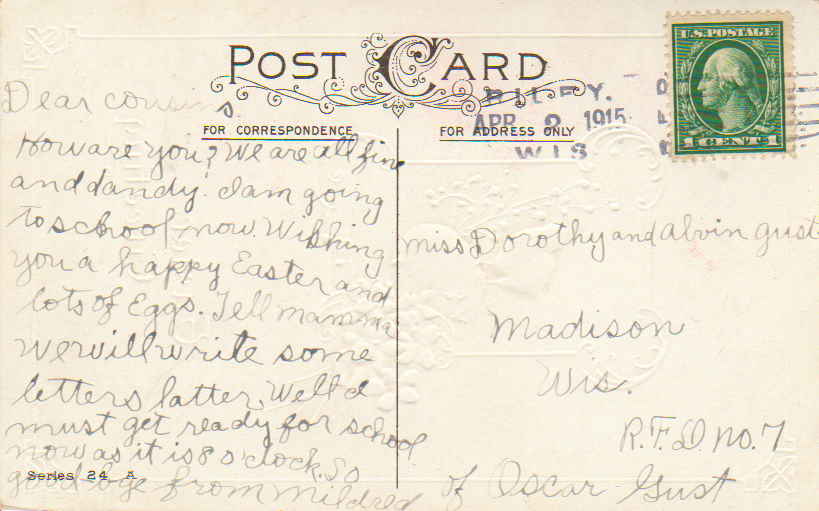 POST CARD
FOR CORRESPONDENCE
FOR ADDRESS ONLY
U.S. POSTAGE
RILEY.
APR 2 1915
WIS
Dear cousins
How are you? We are all fine
and dandy. I am going
to school now. Wishing
you a happy Easter and
lots of Eggs. Tell mamma
we will write some
letters latter. Well I
must get ready for school
now as it is 8 o'clock. So
good-bye from Mildred
Series 24 A
Miss Dorothy and Alvin Gust
Madison
Wis.
R.F.D. no. 7
of Oscar Gust